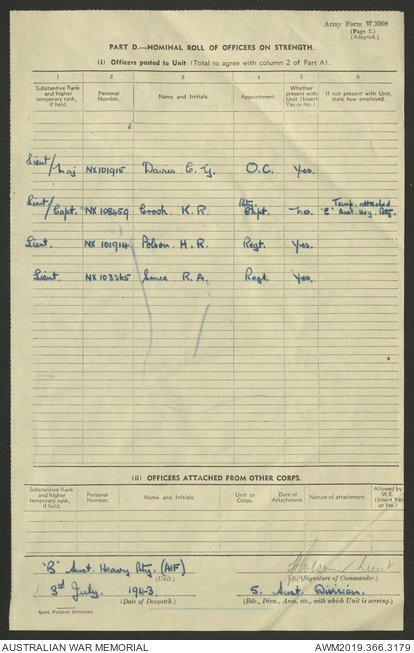 Army Form W.3008
(Page 2.)
(Adapted.)
PART D.—NOMINAL ROLL OF OFFICERS ON STRENGTH.
(i) Officers posted to Unit (Total to agree with column 2 of Part A).
1 2 3 4 5 6
Substantive Rank and higher temporary rank, if held. Personal Number. Name and Initials. Appointment. Whether present with Unit (Insert Yes or No.) If not present with Unit, state how employed.
Lieut/Maj NX101915 Davis C. G. O.C. Yes.
Lieut/Capt. NX108459 K. R. Bty. Capt. no. Temp. attached "E" Aust. Hvy. Bty.
Lieut. NX 101914 Polson. H. R. Regt. Yes.
Lieut. NX 103365 R. A. Regt. Yes.
(ii) OFFICERS ATTACHED FROM OTHER CORPS.
Substantive Rank and higher temporary rank, if held. Personal Number. Name and Initials. Unit or Corps. Date of Attachment. Nature of attachment. Allowed by W.E. (Insert Yes or No.)
"B" Aust. Heavy Bty. (AIF)
(Unit.)
Lieut
(Signature of Commander.)
3rd July. 1943.
(Date of Despatch.)
5. Aust. Division.
(Bde., Divn., Area, etc., with which Unit is serving.)
Govt. Printer, Brisbane.
AUSTRALIAN WAR MEMORIAL
AWM2019.366.3179